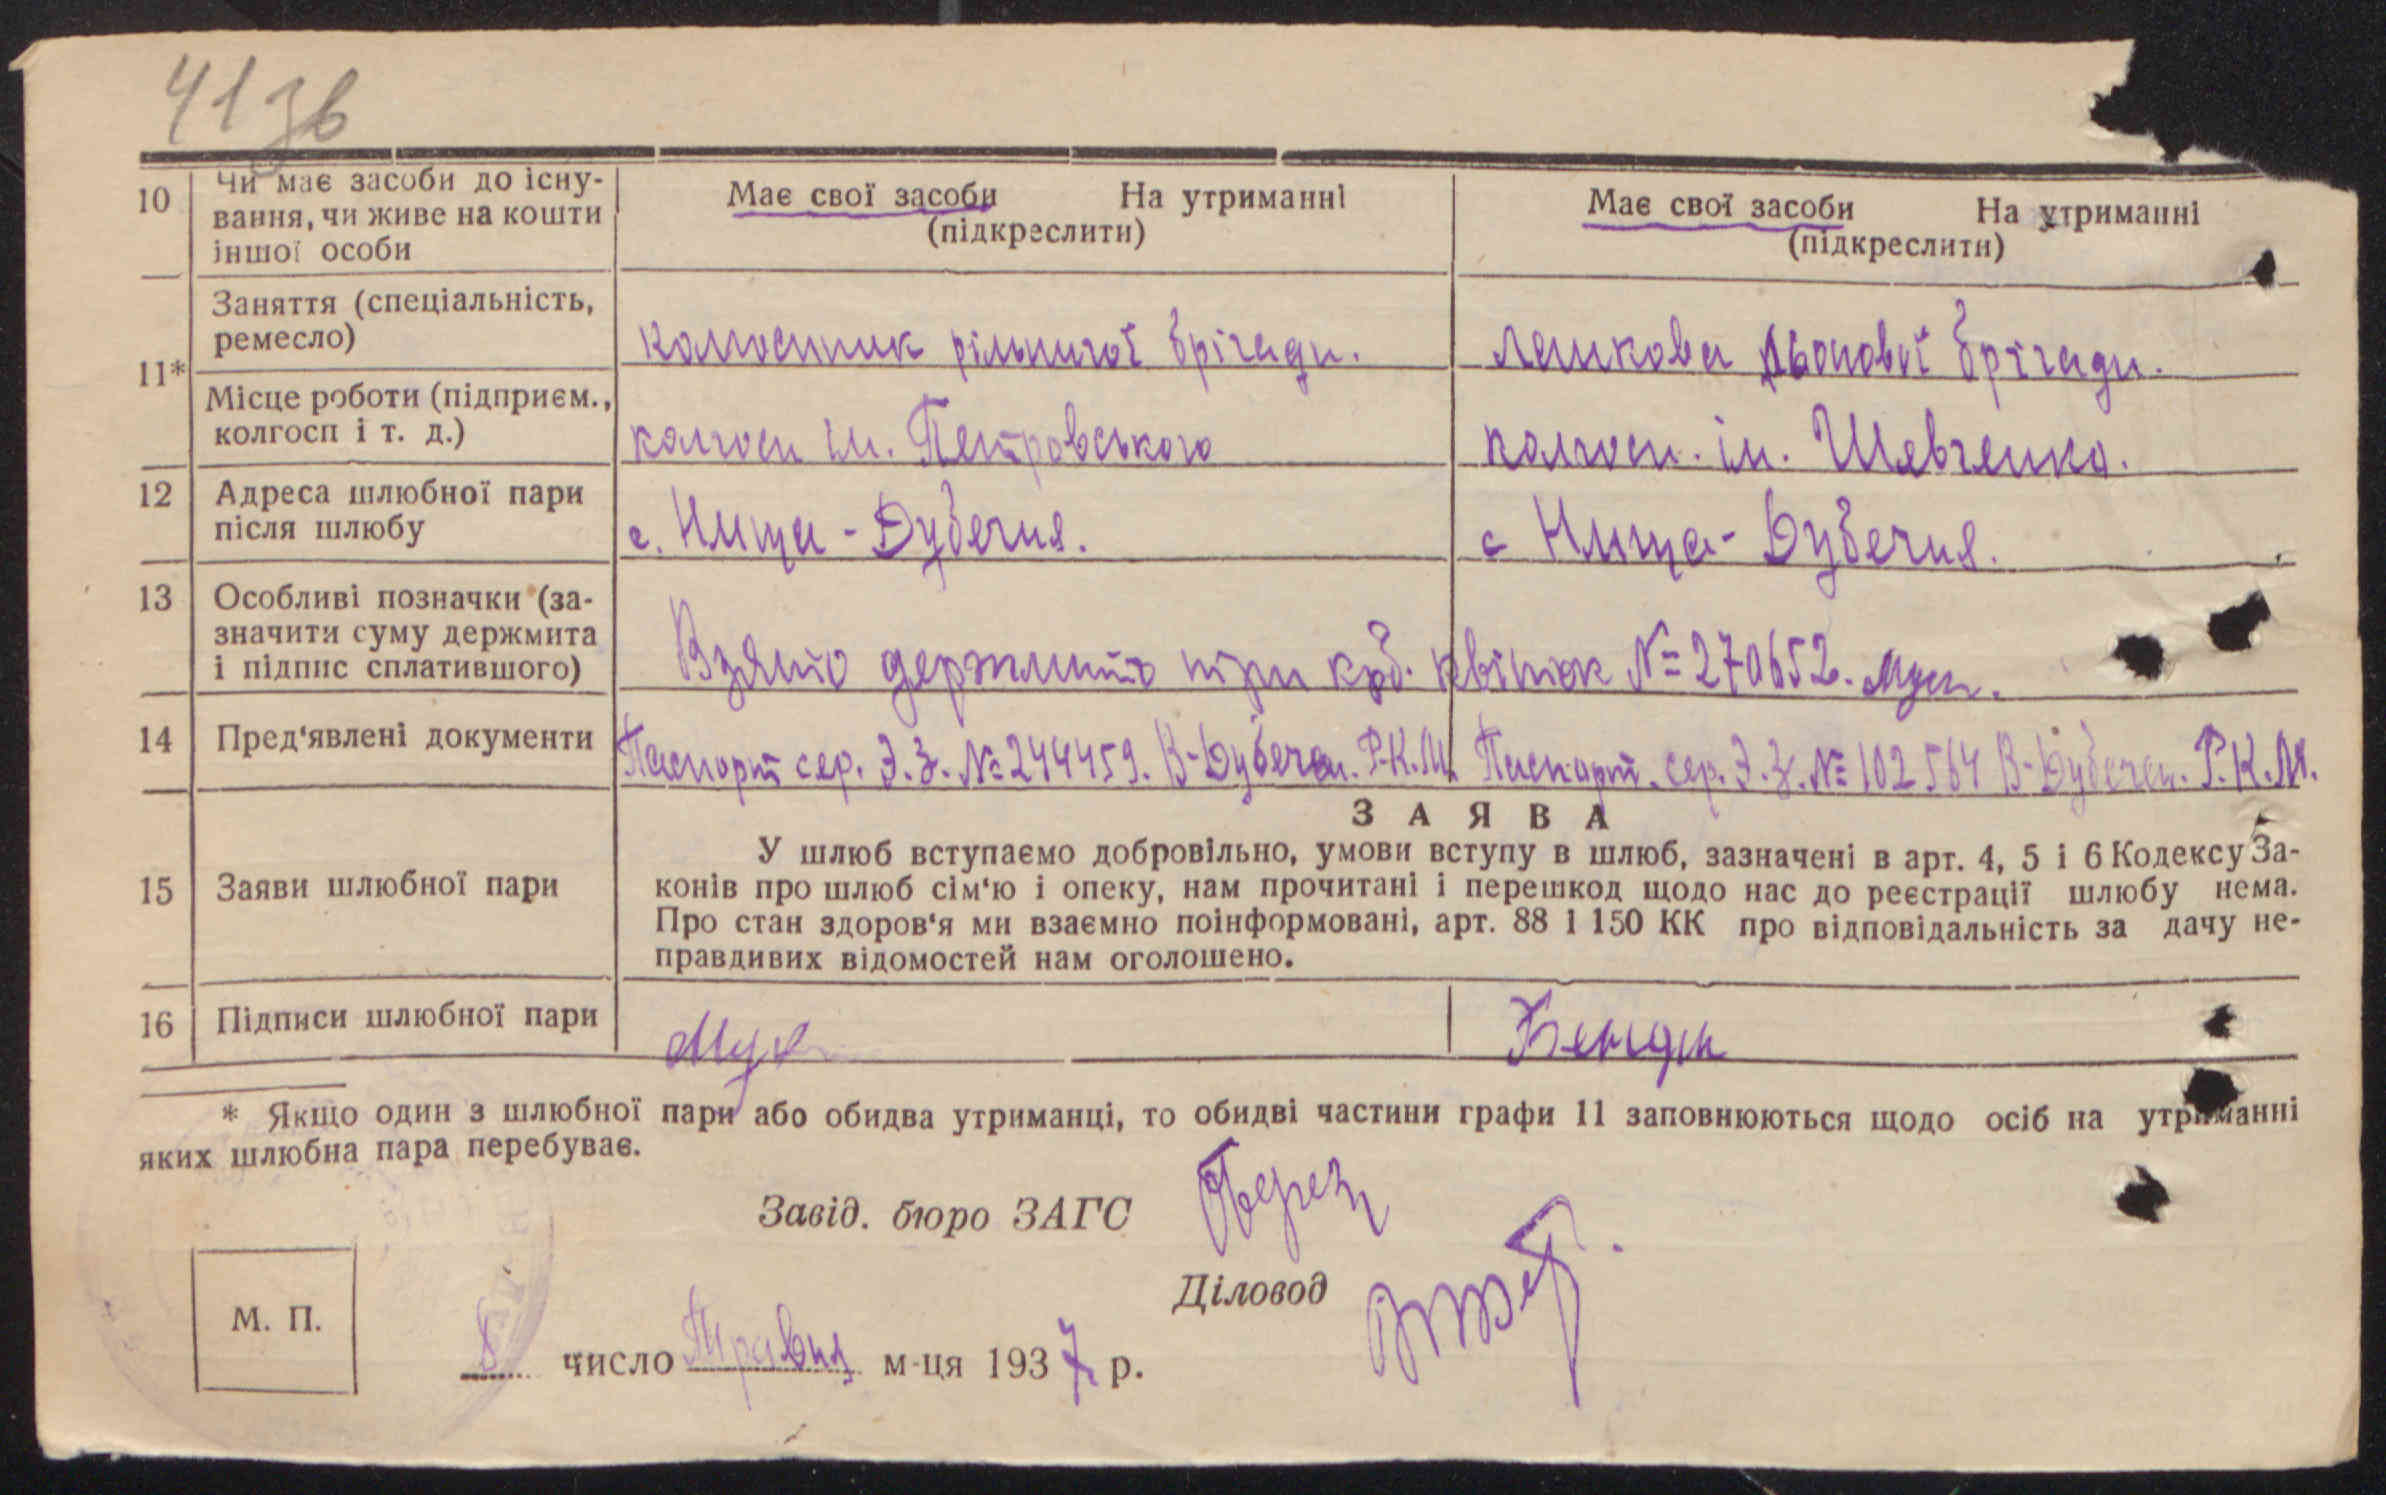 41 зв
10 Чи має засоби до існу-
вання, чи живе на кошти
іншої особи
Має свої засоби На утриманні
(підкреслити)
Має свої засоби На утриманні
(підкреслити)
11*
Заняття (спеціальність,
ремесло)
колгоспник рільничої брігади.
ланкова льонової брігади.
Місце роботи (підприєм.,
колгосп і т. д.)
колгосп ім. Петровського
колгосп. ім. Шевченко.
12 Адреса шлюбної пари
після шлюбу
с. Нища-Дубечня.
с Нища-Дубечня.
13 Особливі позначки (за-
значити суму держмита
і підпис сплатившого)
Взято держмито три крб. квіток № 270652.
14 Пред'явлені документи
Паспорт сер. Э.З. № 244459. В-Дубечан. Р.К.М.
Паспорт. сер. Э.З. № 102564 В-Дубечан. Р.К.М.
15 Заяви шлюбної пари
ЗАЯВА
У шлюб вступаємо добровільно, умови вступу в шлюб, зазначені в арт. 4, 5 і 6 Кодексу За-
конів про шлюб сім'ю і опеку, нам прочитані і перешкод щодо нас до реєстрації шлюбу нема.
Про стан здоров'я ми взаємно поінформовані, арт. 88 і 150 КК про відповідальність за дачу не-
правдивих відомостей нам оголошено.
16 Підписи шлюбної пари
* Якщо один з шлюбної пари або обидва утриманці, то обидві частини графи 11 заповнюються щодо осіб на утриманні
яких шлюбна пара перебуває.
Завід. бюро ЗАГС
Діловод
М. П.
8 число Травня м-ця 1937 р.